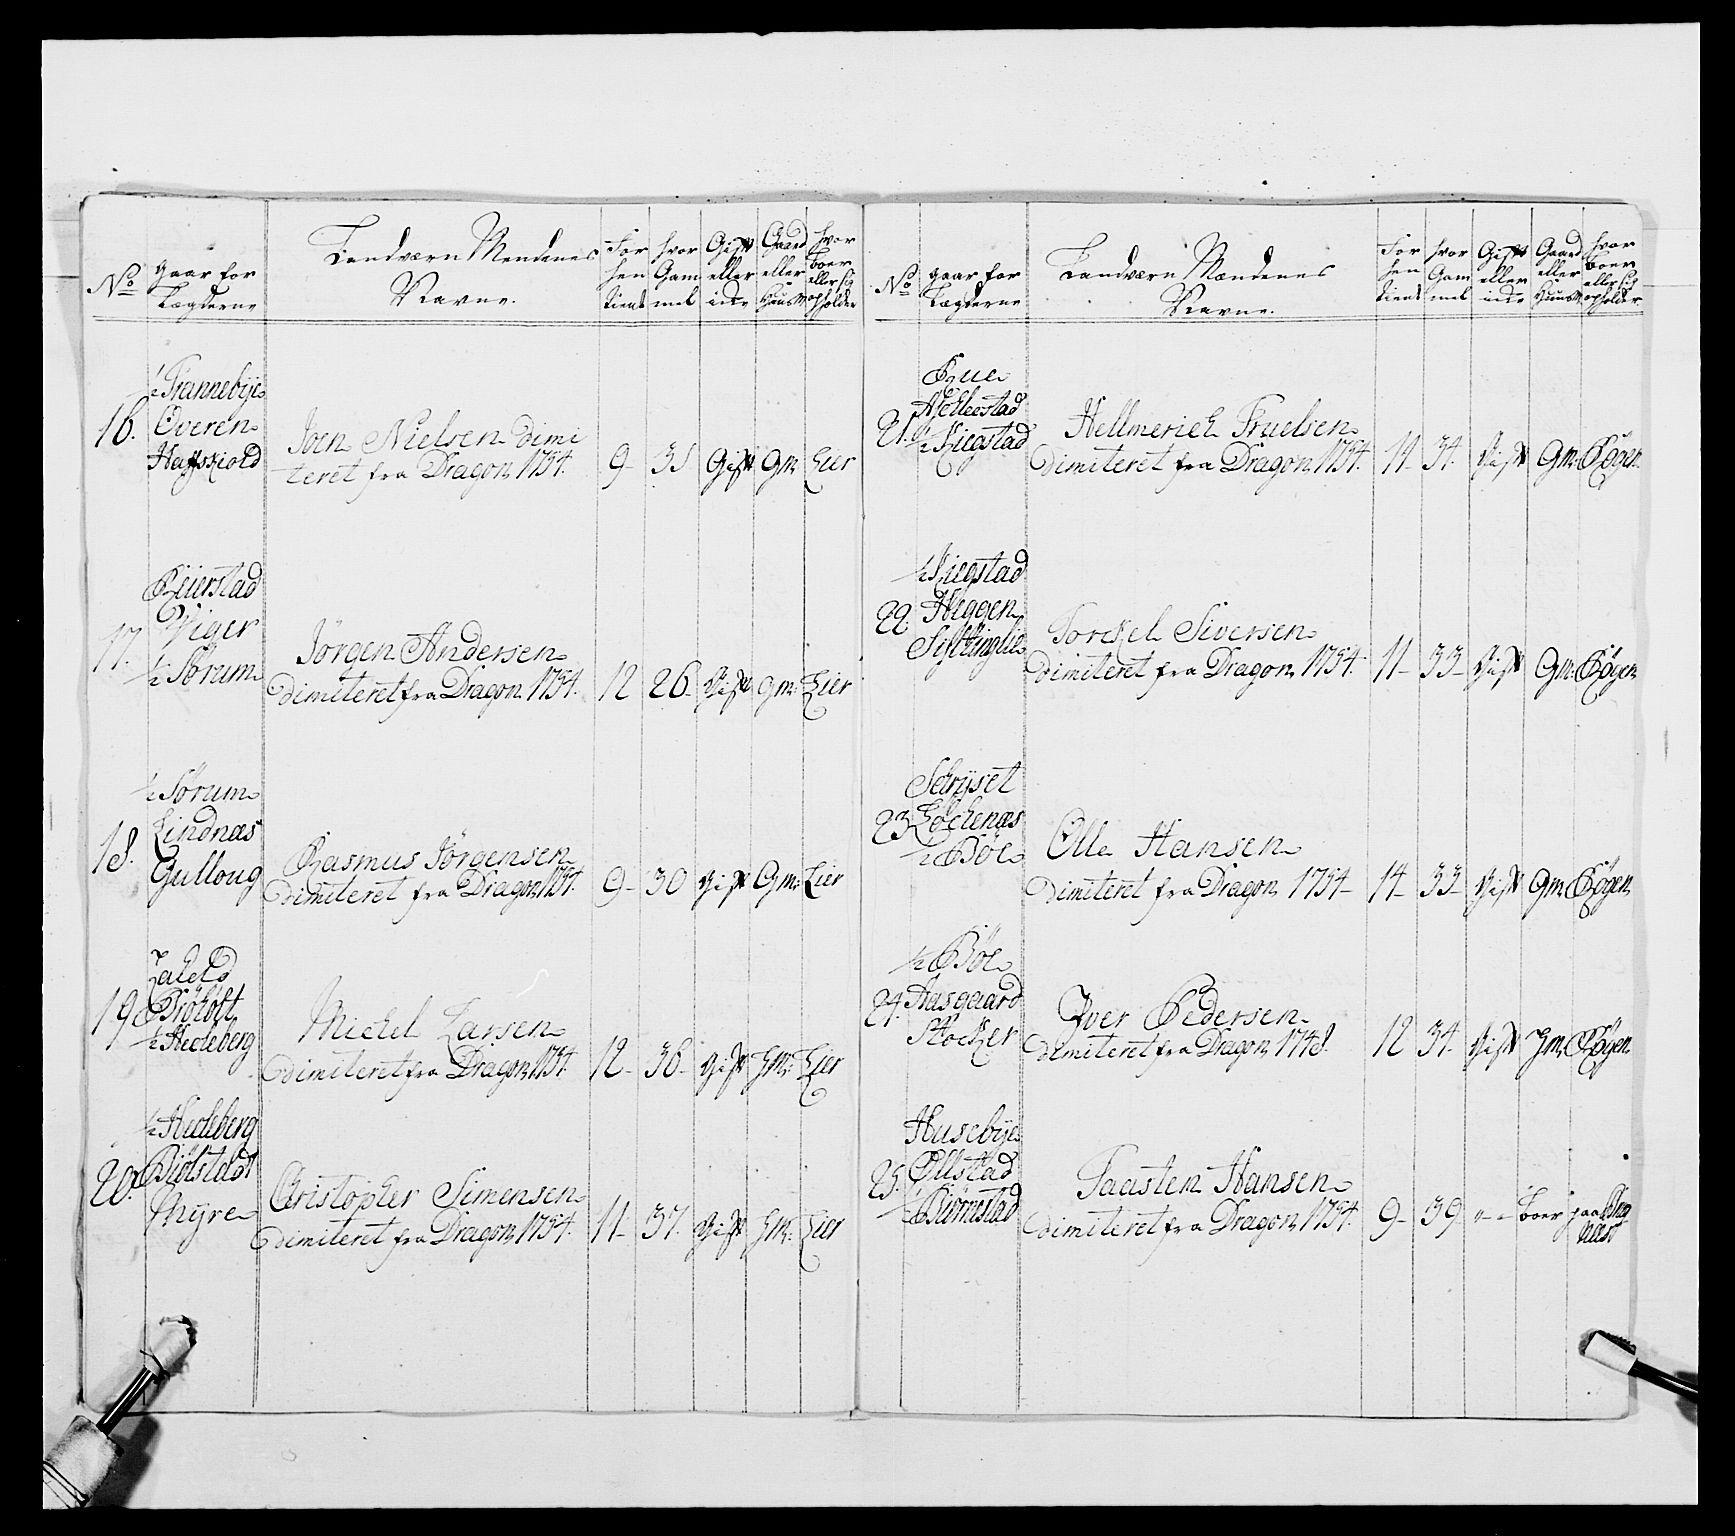 No
gaar for
Lægderne
Landværn Mendenes
Navne.
For
hen
tient
hvor
Gam
mel
Gift
eller
inde
Gaard
eller
Huusm
hvor
boer
eller sig
opholder
16.
½ Trannebye
Overen
Haffskiold
Joen Nielsen dimi
teret fra Dragon 1754.
9 35 Gift Gm Lier
17.
Reierstad
Viger
½ Sørum
Jørgen Andersen
Dimiteret fra Dragon 1754.
12 26 Gift Gm: Lier
18.
½ Sørum
Lindnæs
Gulloug
Rasmus Jørgensen
Dimiteret fra Dragon 1754.
9 30 Gift Gm: Lier
19
½ Hecleberg
Michel Larsen
Dimiteret fra Dragon 1754.
12 36 Gift Hm: Lier
20.
½ Hecleberg
Myre
Christopher Simensen
Dimiteret fra Dragon 1754.
11 37. Gift Hm: Lier
No
gaar for
Lægderne
Landværn Mændenes
Navne.
For
hen
tient
hvor
Gam
mel
Gift
eller
inde
Gaard
eller
Huusm
hvor
boer
eller sig
opholder
21.
Rue
½ Kiegstad
Hellmerich Truelsen
Dimiteret fra Dragon 1754.
14 34. Gift Gm: Røgen
22
½ Kiegstad
Heggen
Torckel Siversen
Dimiteret fra Dragon 1754.
11 33 Gift Gm: Røgen
23
Schryset
½ Bøe
Olle Hansen
Dimiteret fra Dragon 1754
14 33 Gift Gm Røgen
24.
½ Bøe
Aasgaard
Stocker
Iver Pedersen
Dimiteret fra Dragon 1748.
12 34. Gift Hm Røgen
25.
Husebye
Ollstad
½ Biørnstad
Taasten Hansen
Dimiteret fra Dragon 1754.
9 39 boer paa